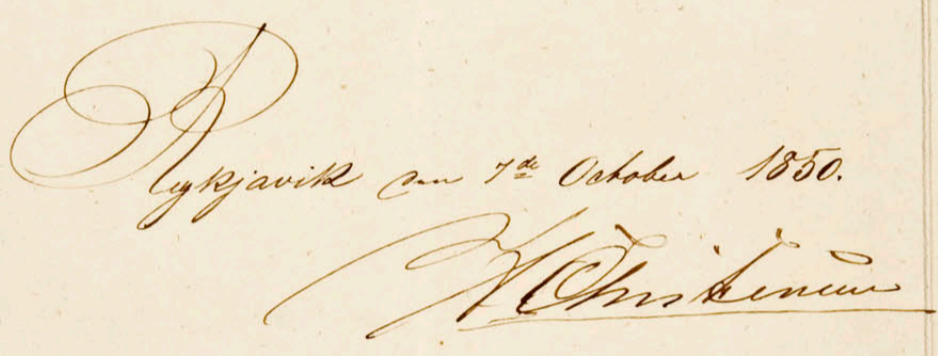 Reykjavik den 7de October 1850.
Christensen